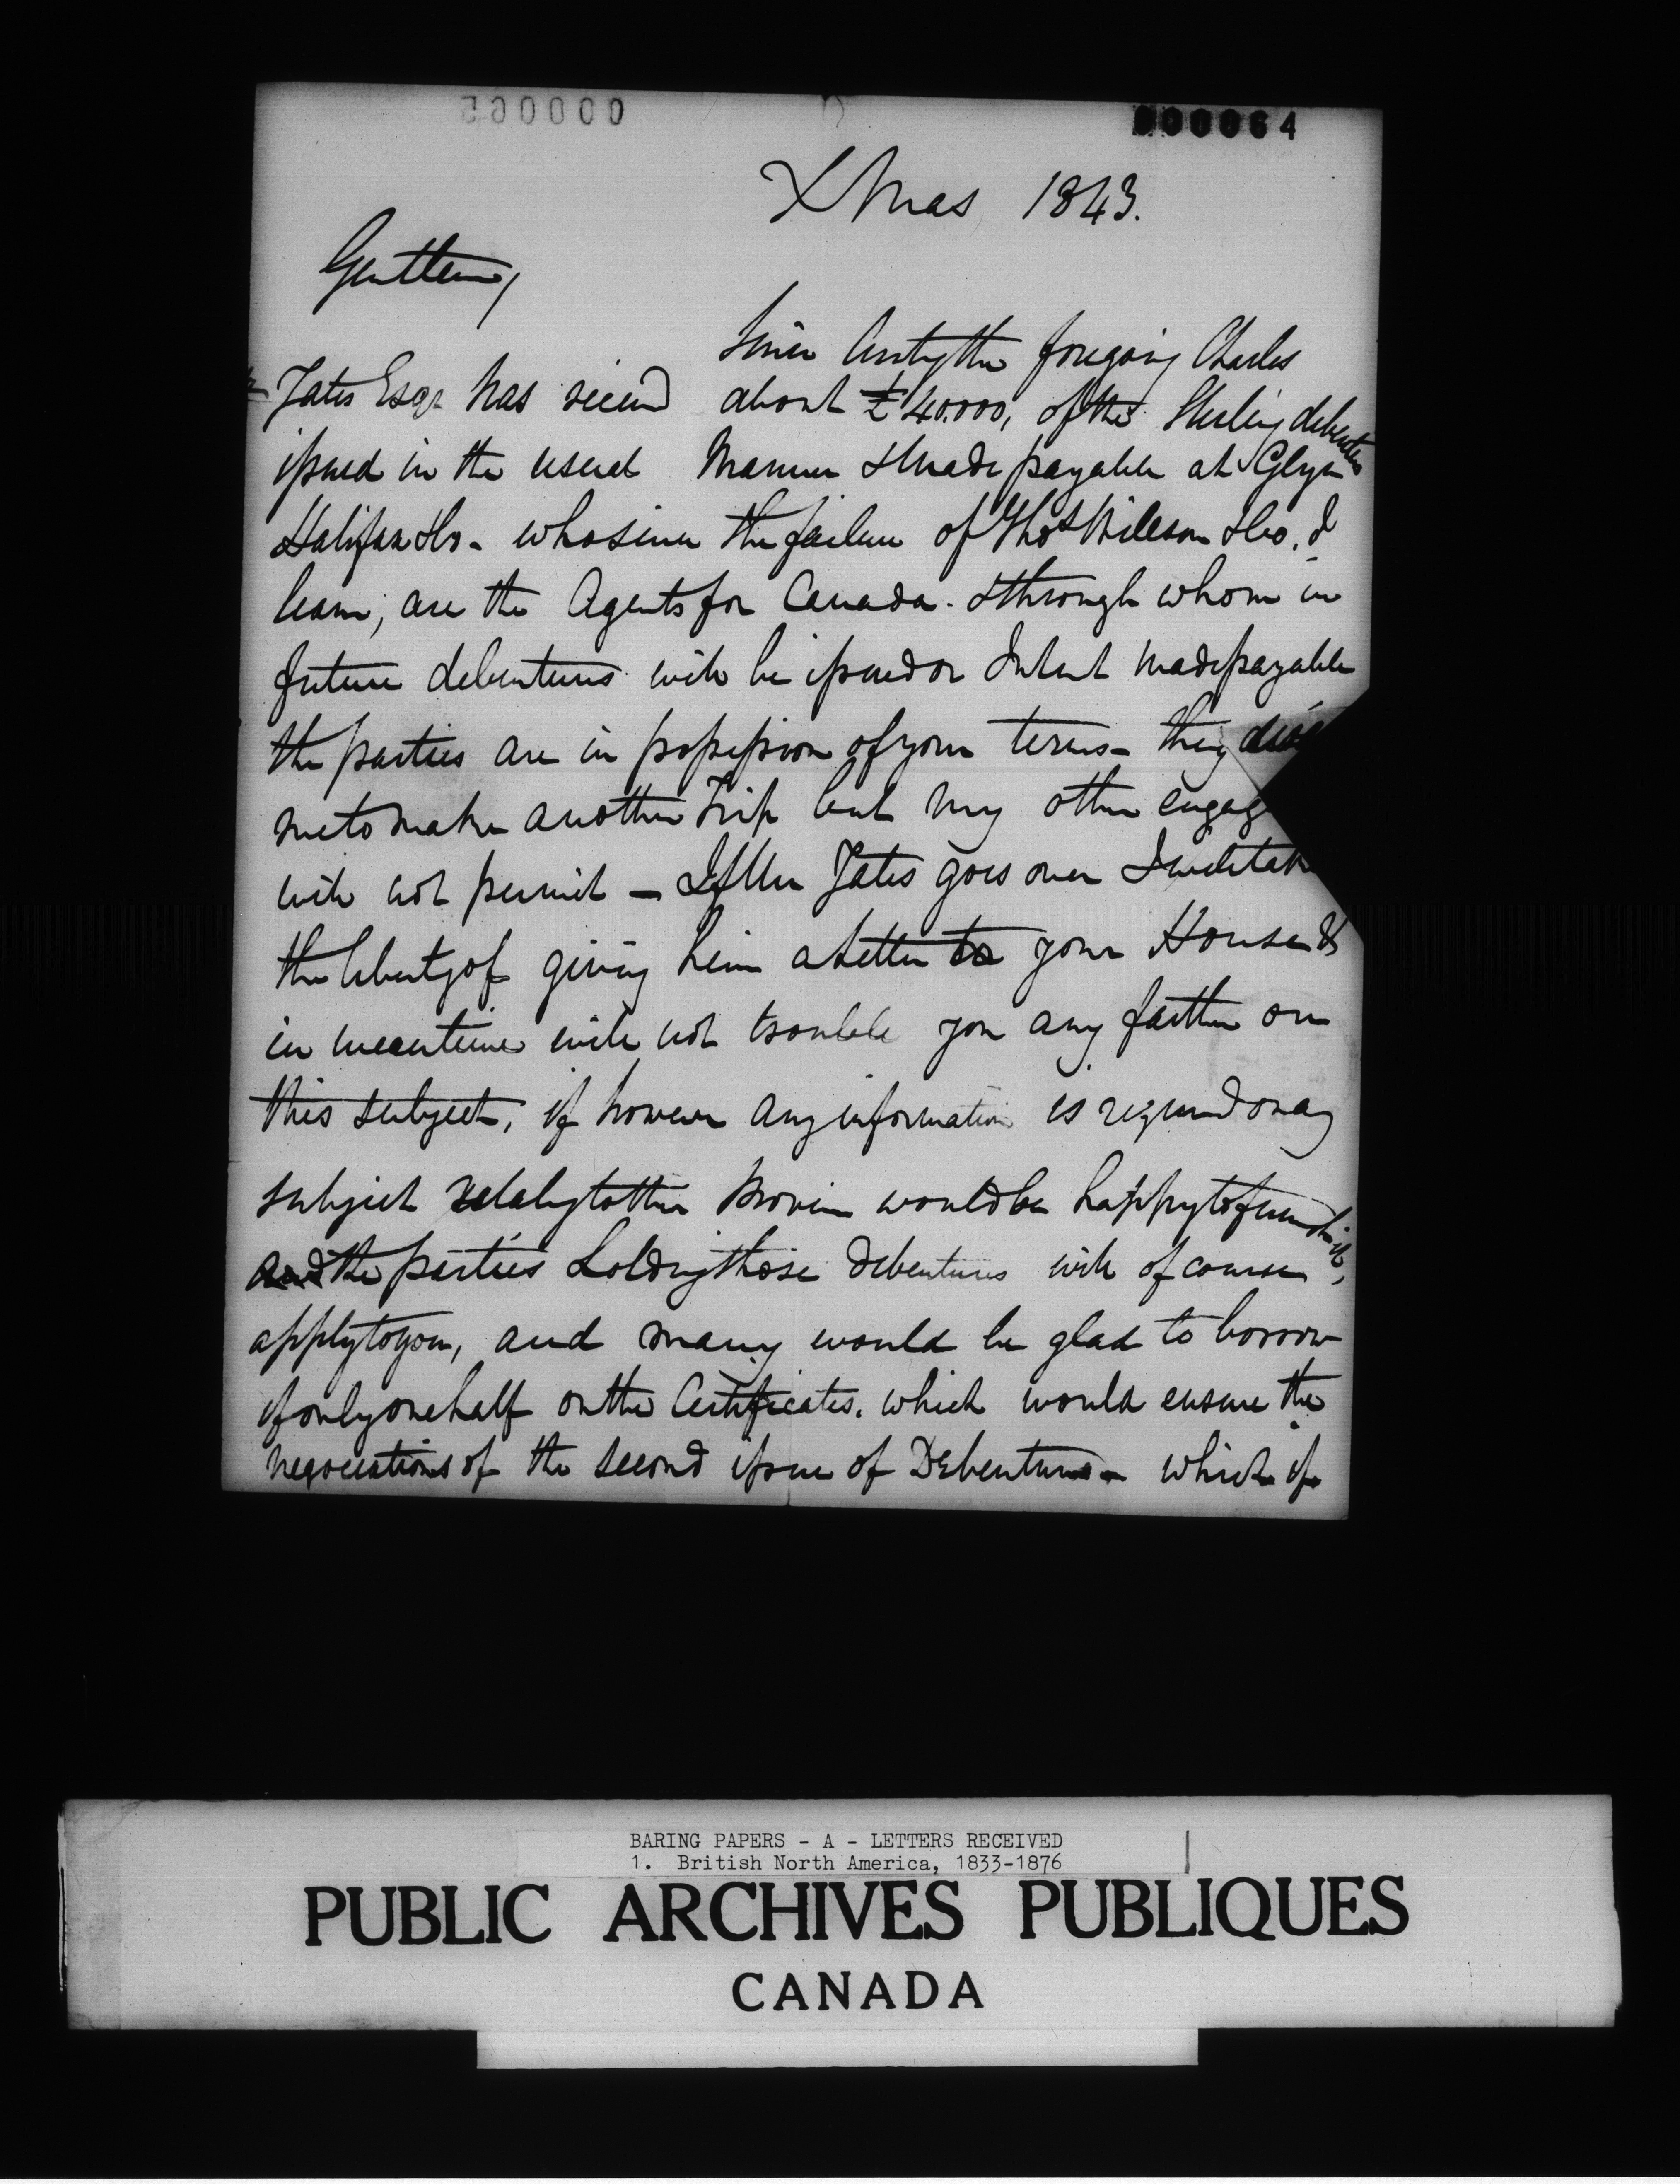 000064
XMas 1843.
Gentlem,
Since writing the foregoing Charles
Yates Esqr has receivd about £40.000, of the Sterling debentures
issued in the usual Manner & made payable at Glyn
Halifax & Co - who since the failure of Thos Willson & Co. I
learn, are the Agents for Canada. & through whom in
future debentures will be issued or Intrst made payable
the parties are in possession of your terms - they
me to make another Trip but my other engag
will not permit - If Mr Yates goes over I will tak
the liberty of giving him a Letter to your House &
in meantime will not trouble you any farther on
this subject, if however any information is requird on any
subject relatig to the Provin would be happy to furnish it,
and the parties holding those debentures will of course
apply to you, and many would be glad to borrow
if only one half on the Certificates. which would ensure the
negociations of the second issue of Debentures - which if
BARING PAPERS - A - LETTERS RECEIVED
1. British North America, 1833-1876
PUBLIC ARCHIVES PUBLIQUES
CANADA